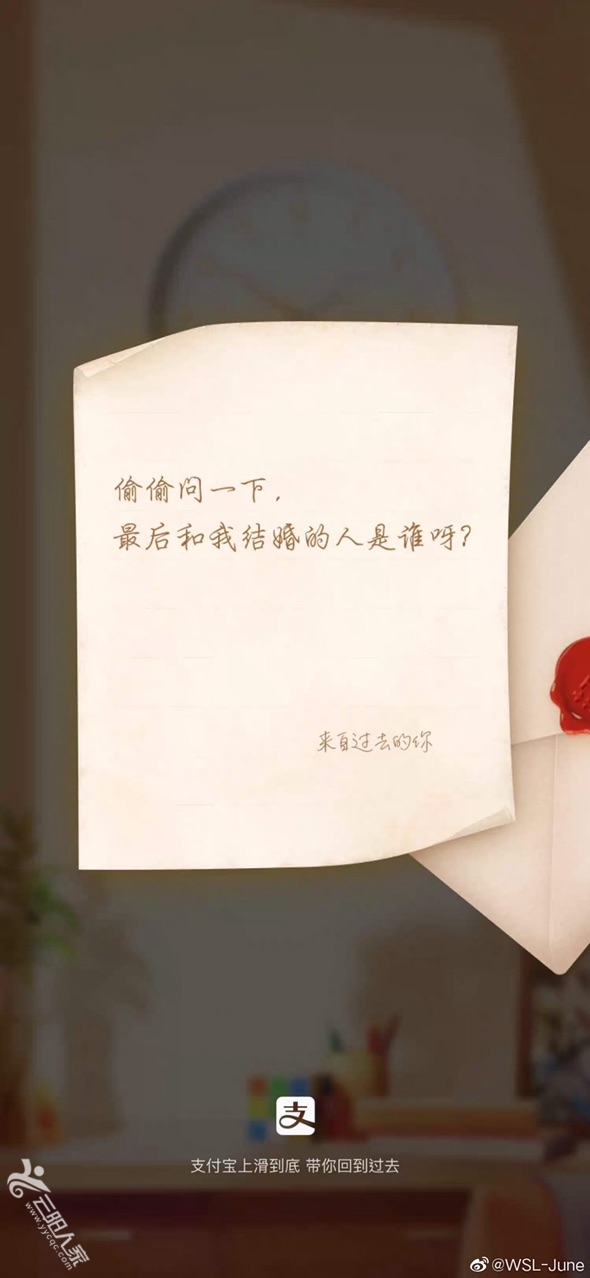 偷偷问一下,
最后和我结婚的人是谁呀?
来自过去的你
支
支付宝上滑到底 带你回到过去
云阳人家
www.yycqc.com
@WSL-June